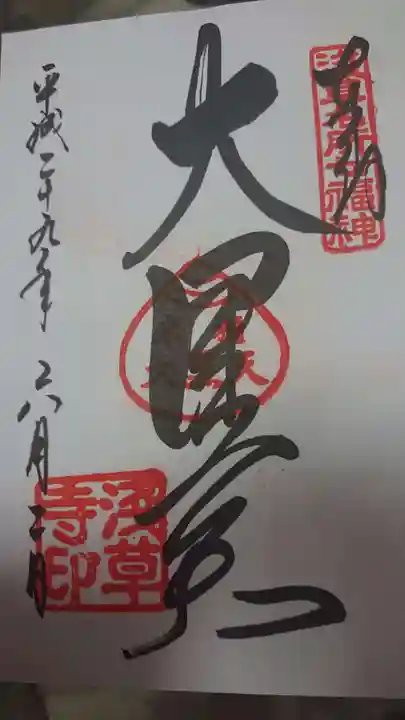 奉拝
浅草名所七福神
大黒天
平成二十九年 六月二日
浅草寺印